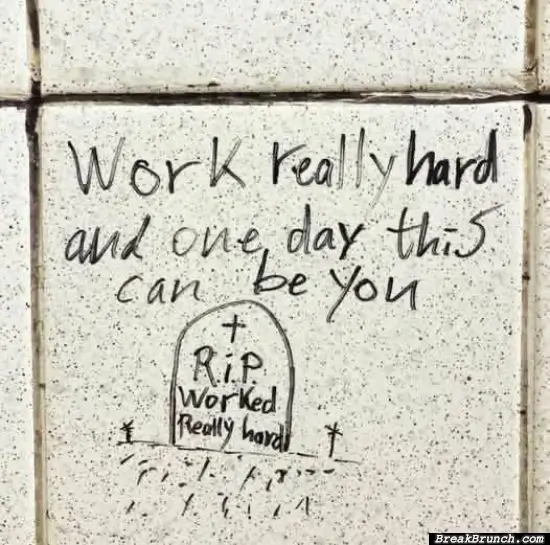 Work really hard
and one day this
can be you
R.i.P.
Worked
Really hard
BreakBrunch.com